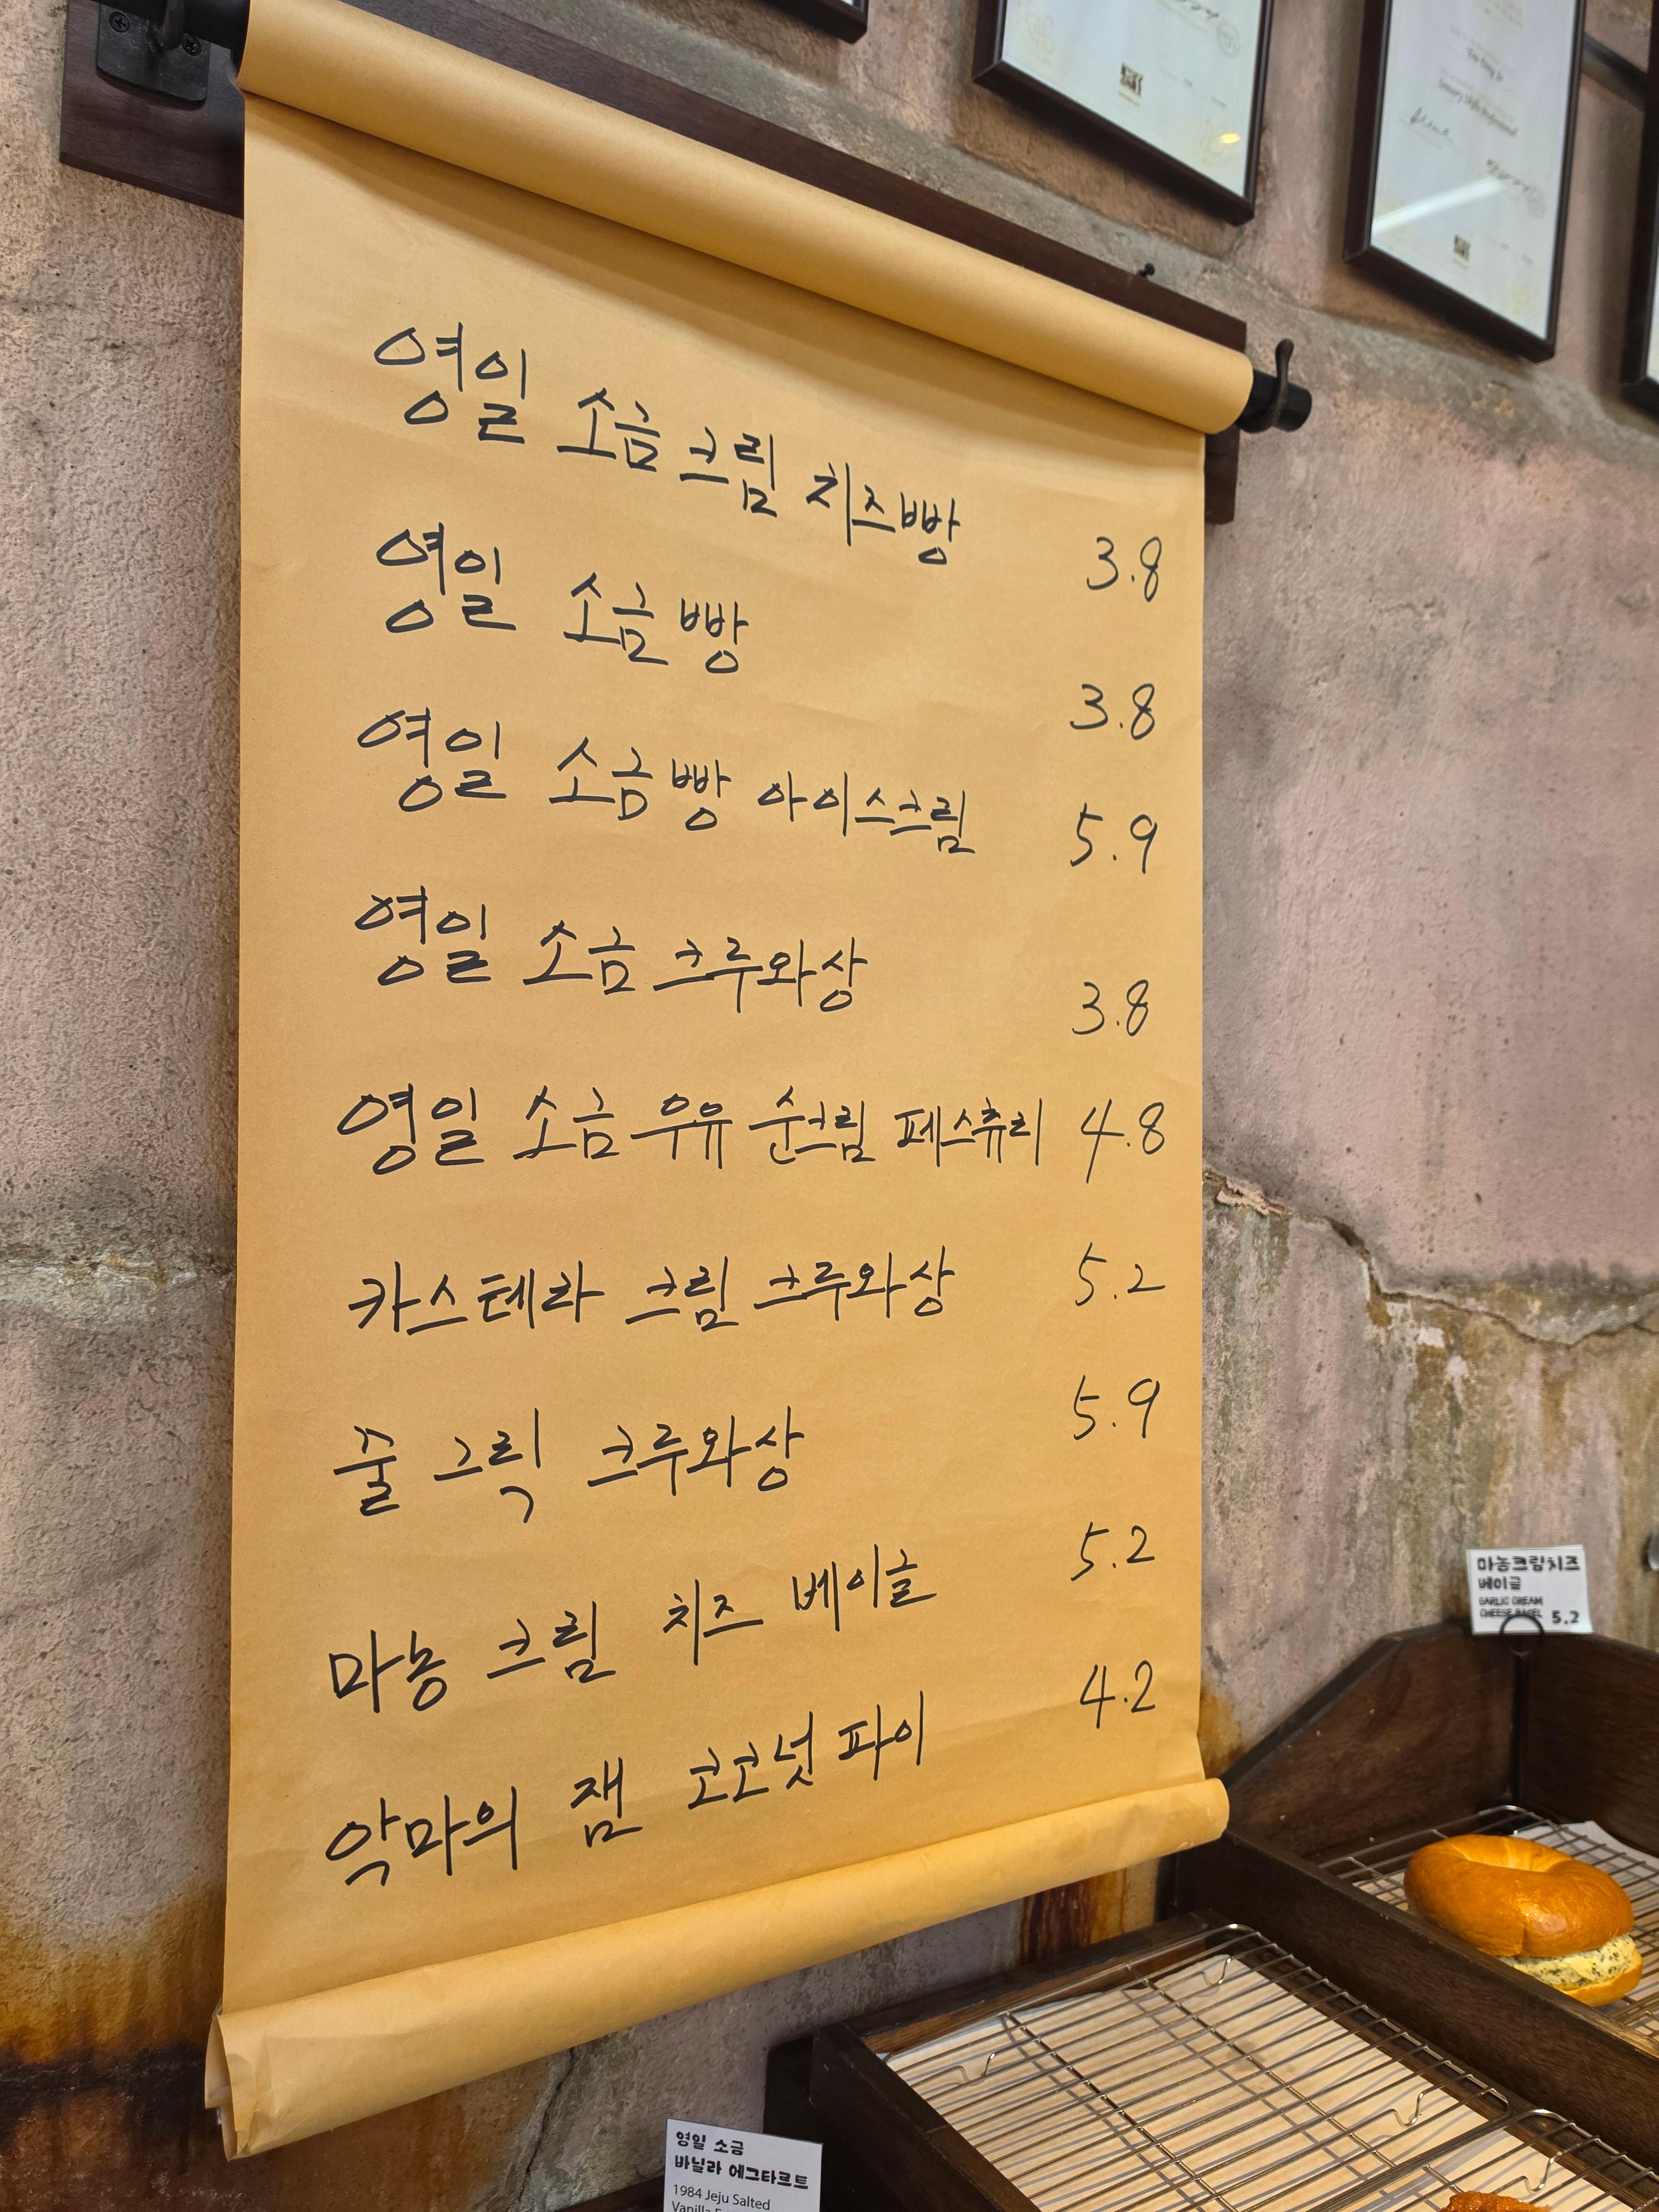 영일 소금 크림 치즈빵 3.8
영일 소금 빵 3.8
영일 소금 빵 아이스크림 5.9
영일 소금 크루와상 3.8
영일 소금 우유 순크림 페스츄리 4.8
카스테라 크림 크루와상 5.2
쭐 그릭 크루와상 5.9
마농 크림 치즈 베이글 5.2
악마의 잼 코코넛 파이 4.2
마농크림치즈
베이글
GARLIC CREAM
CHEESE BAGEL 5.2
영일 소금
바닐라 에그타르트
1984 Jeju Salted
Vanilla